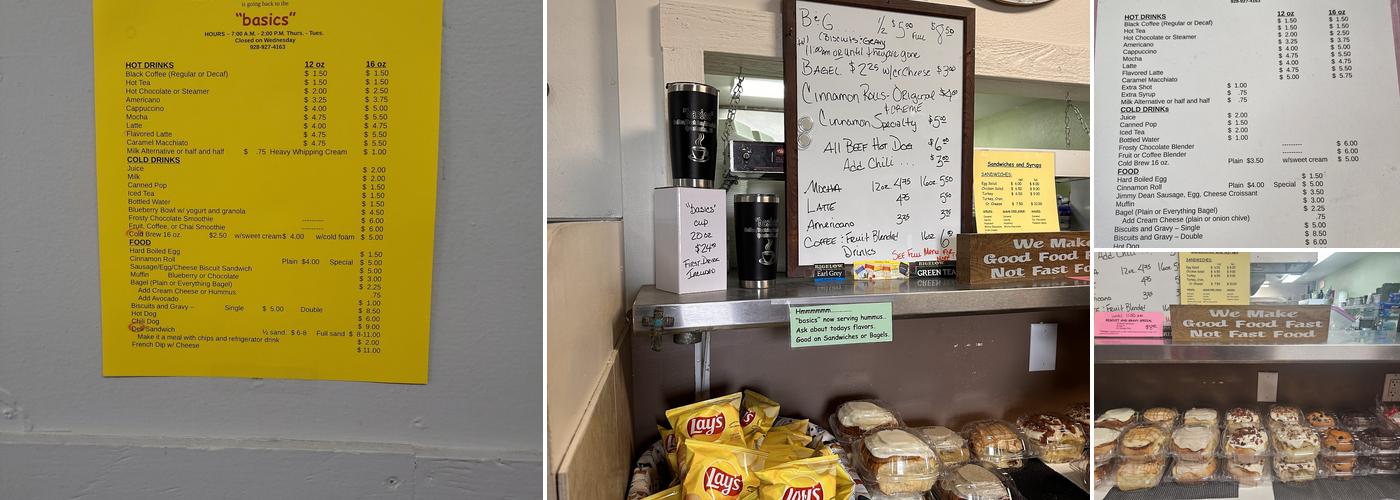 is going back to the
"basics"
HOURS - 7:00 A.M. - 2:00 P.M. Thurs. - Tues.
Closed on Wednesday
928-927-4163
HOT DRINKS 12 oz 16 oz
Black Coffee (Regular or Decaf) $ 1.50 $ 1.50
Hot Tea $ 1.50 $ 1.50
Hot Chocolate or Steamer $ 2.00 $ 2.50
Americano $ 3.25 $ 3.75
Cappuccino $ 4.00 $ 5.00
Mocha $ 4.75 $ 5.50
Latte $ 4.00 $ 4.75
Flavored Latte $ 4.75 $ 5.50
Caramel Macchiato $ 4.75 $ 5.50
Milk Alternative or half and half $ .75 Heavy Whipping Cream $ 1.00
COLD DRINKS
Juice $ 2.00
Milk $ 2.00
Canned Pop $ 1.50
Iced Tea $ 1.50
Bottled Water $ 1.50
Blueberry Bowl w/ yogurt and granola $ 4.50
Frosty Chocolate Smoothie ---------- $ 6.00
Fruit, Coffee, or Chai Smoothie $ 6.00
Cold Brew 16 oz. $2.50 w/sweet cream$ 4.00 w/cold foam $ 5.00
FOOD
Hard Boiled Egg $ 1.50
Cinnamon Roll Plain $4.00 Special $ 5.00
Sausage/Egg/Cheese Biscuit Sandwich $ 5.00
Muffin Blueberry or Chocolate $ 3.00
Bagel (Plain or Everything Bagel) $ 2.25
Add Cream Cheese or Hummus .75
Add Avocado $ 1.00
Biscuits and Gravy – Single $ 5.00 Double $ 8.50
Hot Dog $ 6.00
Chili Dog $ 9.00
Deli Sandwich ½ sand. $ 6-8 Full sand $ 8-11.00
Make it a meal with chips and refrigerator drink $ 2.00
French Dip w/ Cheese $ 11.00
B&G 1/2 $5.00 Full $8.50
(Biscuits & Gravy
11:00am or until they're gone
BAGEL $2.25 w/cr cheese $3.00
Cinnamon Rolls - Original $4.00
& CREME
Cinnamon Specialty $5.00
All Beef Hot Dog $6.00
Add Chili ... $3.00
MOCHA 12oz 4.75 16oz 5.50
LATTE
Americano
COFFEE: Fruit Blended
Drinks
SEE Full Menu
"basics"
cup
20oz
$24.00
FIRST DRINK
INCLUDED
"basics"
Sandwiches and Syrups
SANDWICHES:
BIGELOW
Earl Grey
BIGELOW
GREEN TEA
We Make
Good Food Fast
Not Fast Fo
Hmmmmmm........
"basics" now serving hummus..
Ask about todays flavors.
Good on Sandwiches or Bagels.
Lay's
Lay's
Lay's
928-927-4163
HOT DRINKS 12 oz 16 oz
Black Coffee (Regular or Decaf) $ 1.50 $ 1.50
Hot Tea $ 1.50 $ 1.50
Hot Chocolate or Steamer $ 2.00 $ 2.50
Americano $ 3.25 $ 3.75
Cappuccino $ 4.00 $ 5.00
Mocha $ 4.75 $ 5.50
Latte $ 4.00 $ 4.75
Flavored Latte $ 4.75 $ 5.50
Caramel Macchiato $ 5.00 $ 5.75
Extra Shot $ 1.00
Extra Syrup $ .75
Milk Alternative or half and half $ .75
COLD DRINKs
Juice $ 2.00
Canned Pop $ 1.50
Iced Tea $ 2.00
Bottled Water $ 1.00
Frosty Chocolate Blender --------- $ 6.00
Fruit or Coffee Blender --------- $ 6.00
Cold Brew 16 oz. Plain $3.50 w/sweet cream $ 5.00
FOOD
Hard Boiled Egg $ 1.50
Cinnamon Roll Plain $4.00 Special $ 5.00
Jimmy Dean Sausage, Egg, Cheese Croissant $ 3.50
Muffin $ 3.00
Bagel (Plain or Everything Bagel) $ 2.25
Add Cream Cheese (plain or onion chive) .75
Biscuits and Gravy – Single $ 5.00
Biscuits and Gravy – Double $ 8.50
Hot Dog $ 6.00
We Make
Good Food Fast
Not Fast Food